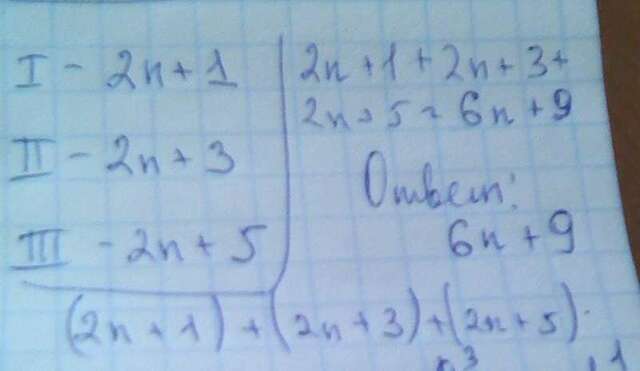 I - 2n + 1
II - 2n + 3
III - 2n + 5
2n + 1 + 2n + 3 +
2n + 5 = 6n + 9
Ответ:
6n + 9
(2n + 1) + (2n + 3) + (2n + 5)